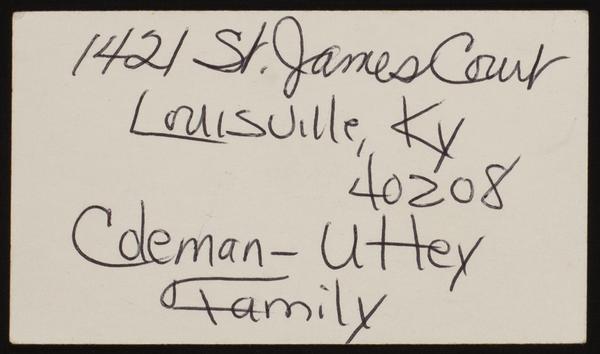 1421 St. James Court
Louisville, Ky
40208
Coleman - Uttey
Family